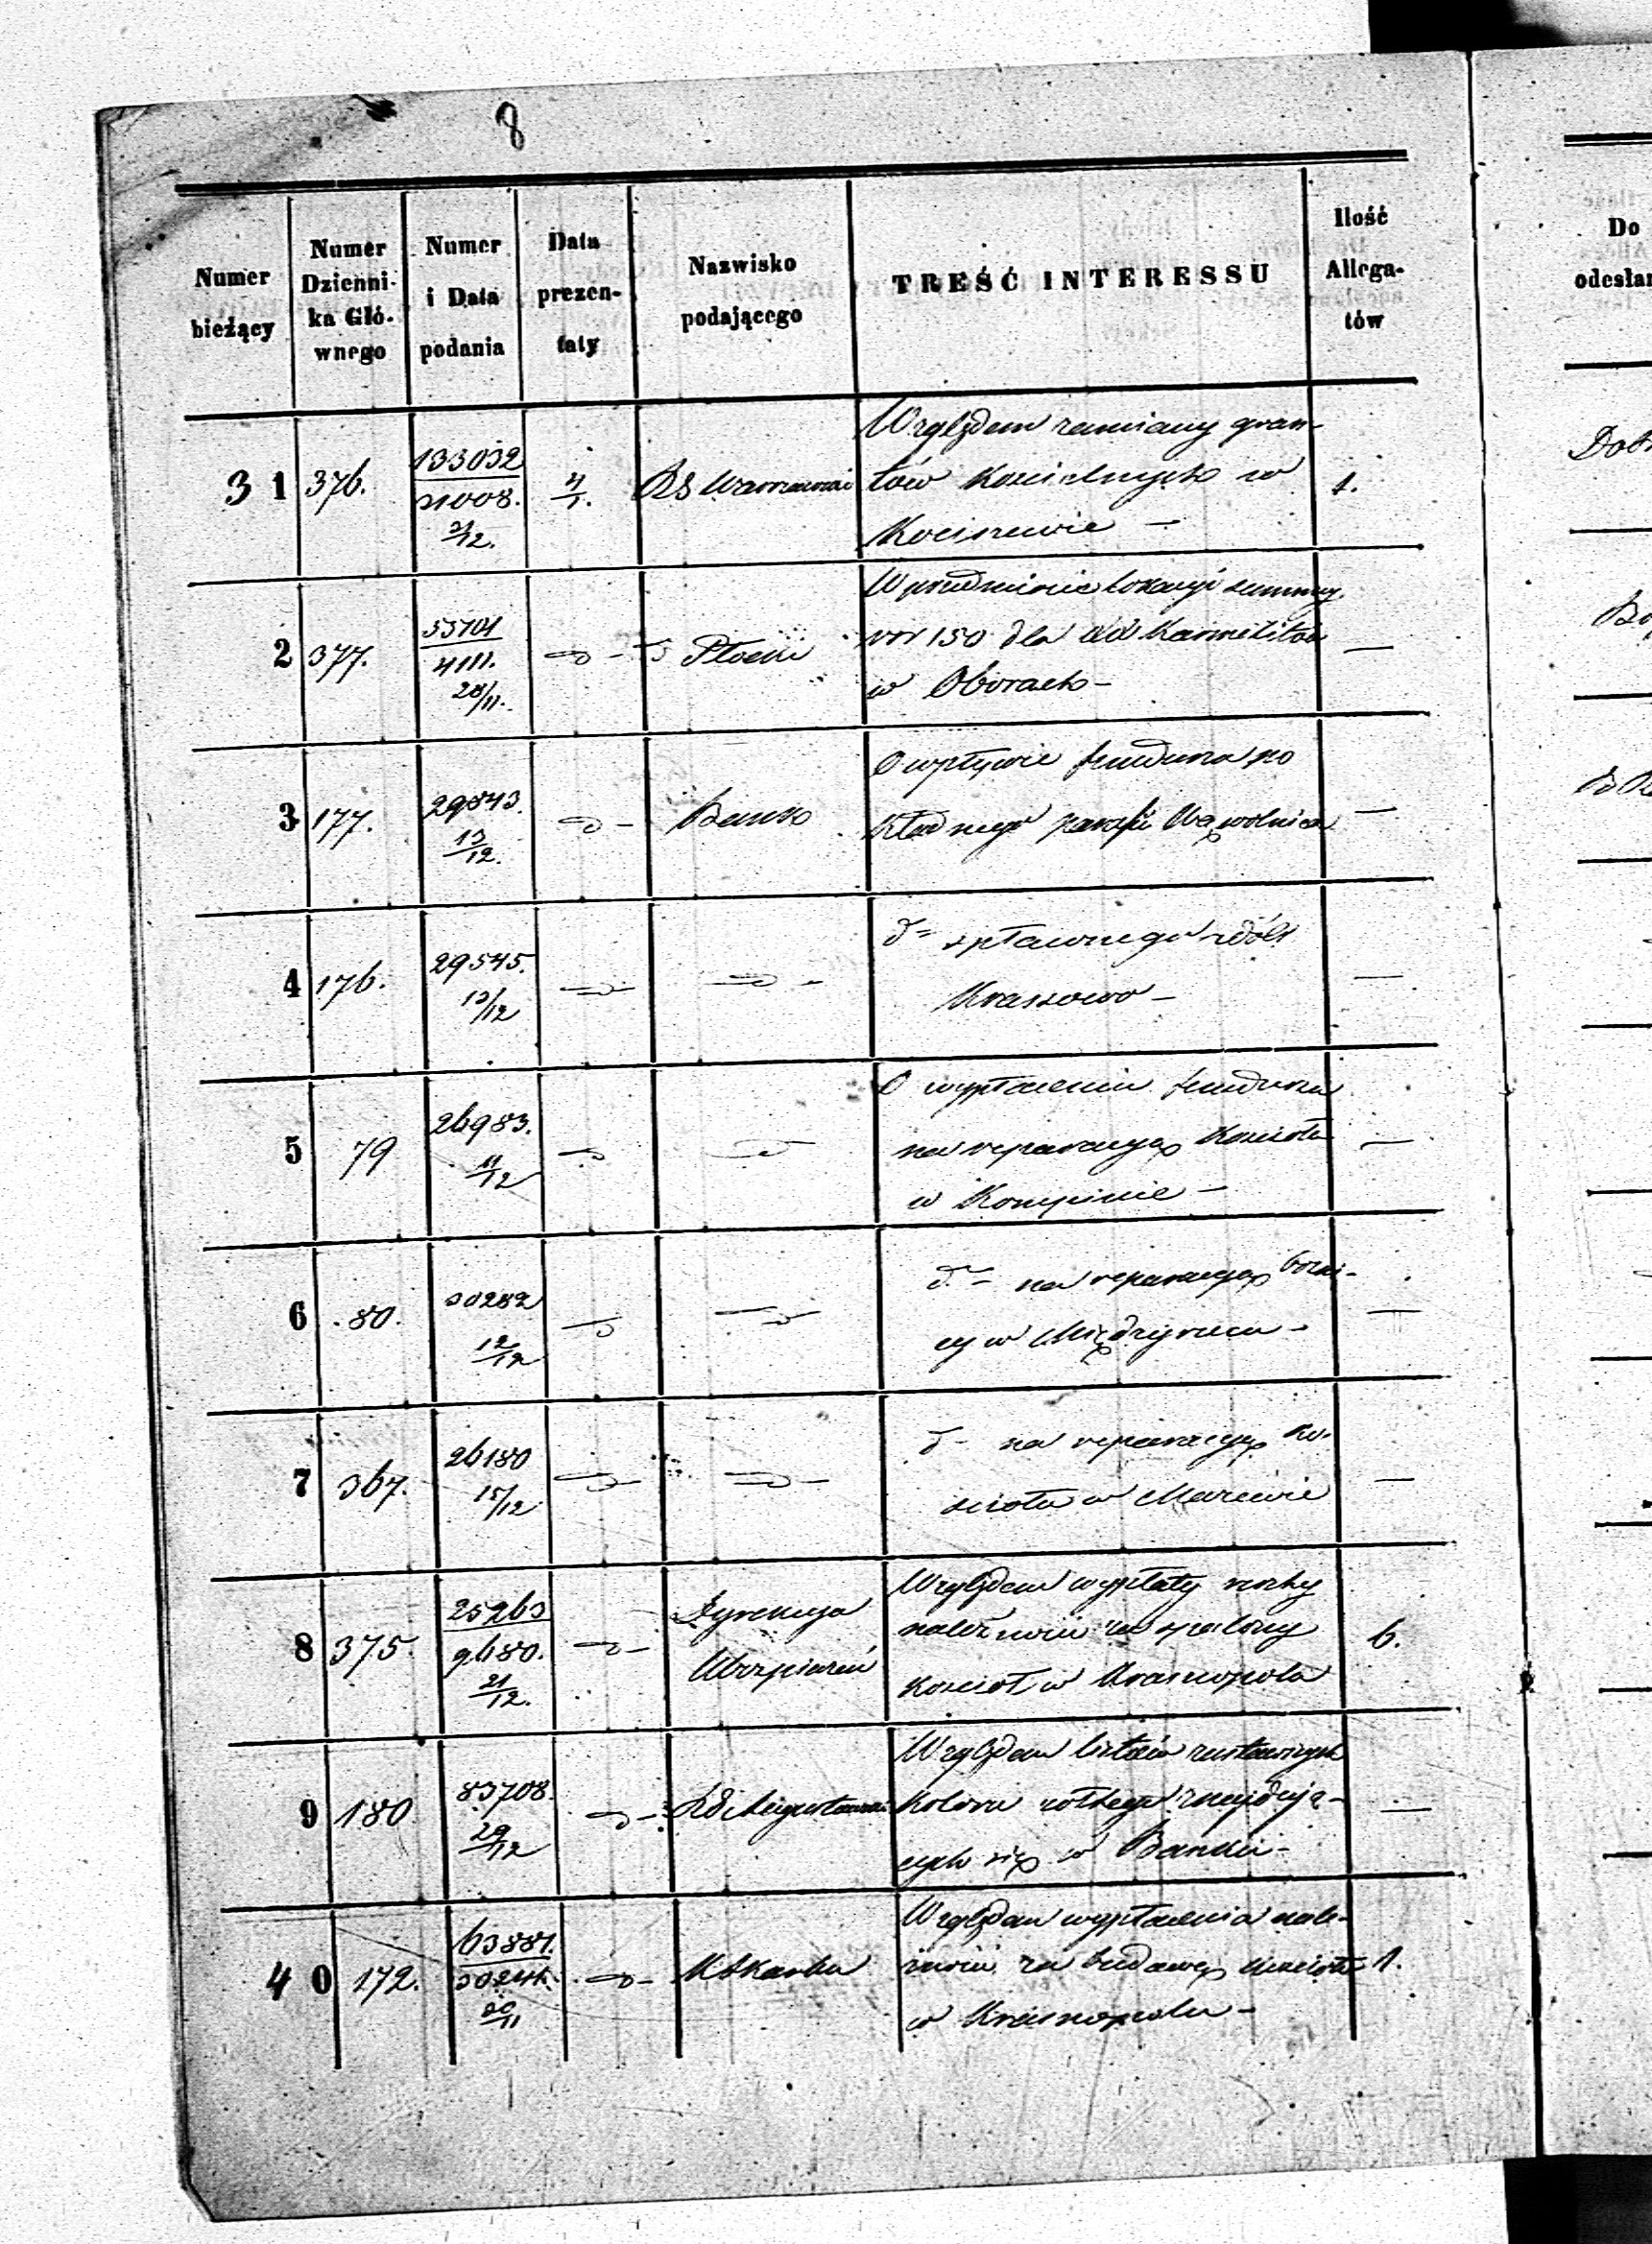 8
Numer bieżący
Numer Dzienni- ka Głó- wnego
Numer i Data podania
Data prezen- taty
Nazwisko podającego
TREŚĆ INTERESSU
Ilość Allega- tów
Do
odesła
31 376. 133032 21008. 21/12. 4/1. RG Warszawski 1.
Względem zamiany grun-
tów Kościelnych w
Kociszewie –
2 377. 53701 4111. 28/11. Płocki —
W przedmiocie lokacyi summy
rsr 150 dla XX Karmelitów
w Oborach –
3 177. 29843. 13/12. Bank —
O wpływie funduszu po
kładnego parafii Wąwolnica
4 176. 29545. 13/12 —
d° spławnego wsi
Krassowo –
5 79 26983. 11/12 —
O wypłaceniu funduszu
na reparacyą Kościoła
w Kompinie –
6 80. 30282 12/12 —
d° na reparacyą bożni-
cy w Międzyrzecu –
7 367. 26180 15/12 —
d° na reparacyą ko-
ścioła w
8 375. 25263 9680. 21/12. Dyrekcya Ubezpieczeń 6.
Względem wypłaty reszty
należności za spalony
kościół w Krasnopolu
9 180 83708. 29/12 RG Augustowski —
Względem listów zastawnych
koloru żółtego znajdują-
cych się w Banku –
40 172. 63887. 30246. 30/11 K S Karbu 1.
Względem wypłacenia nale-
żności za budowę kościoła
w Krasnopolu –